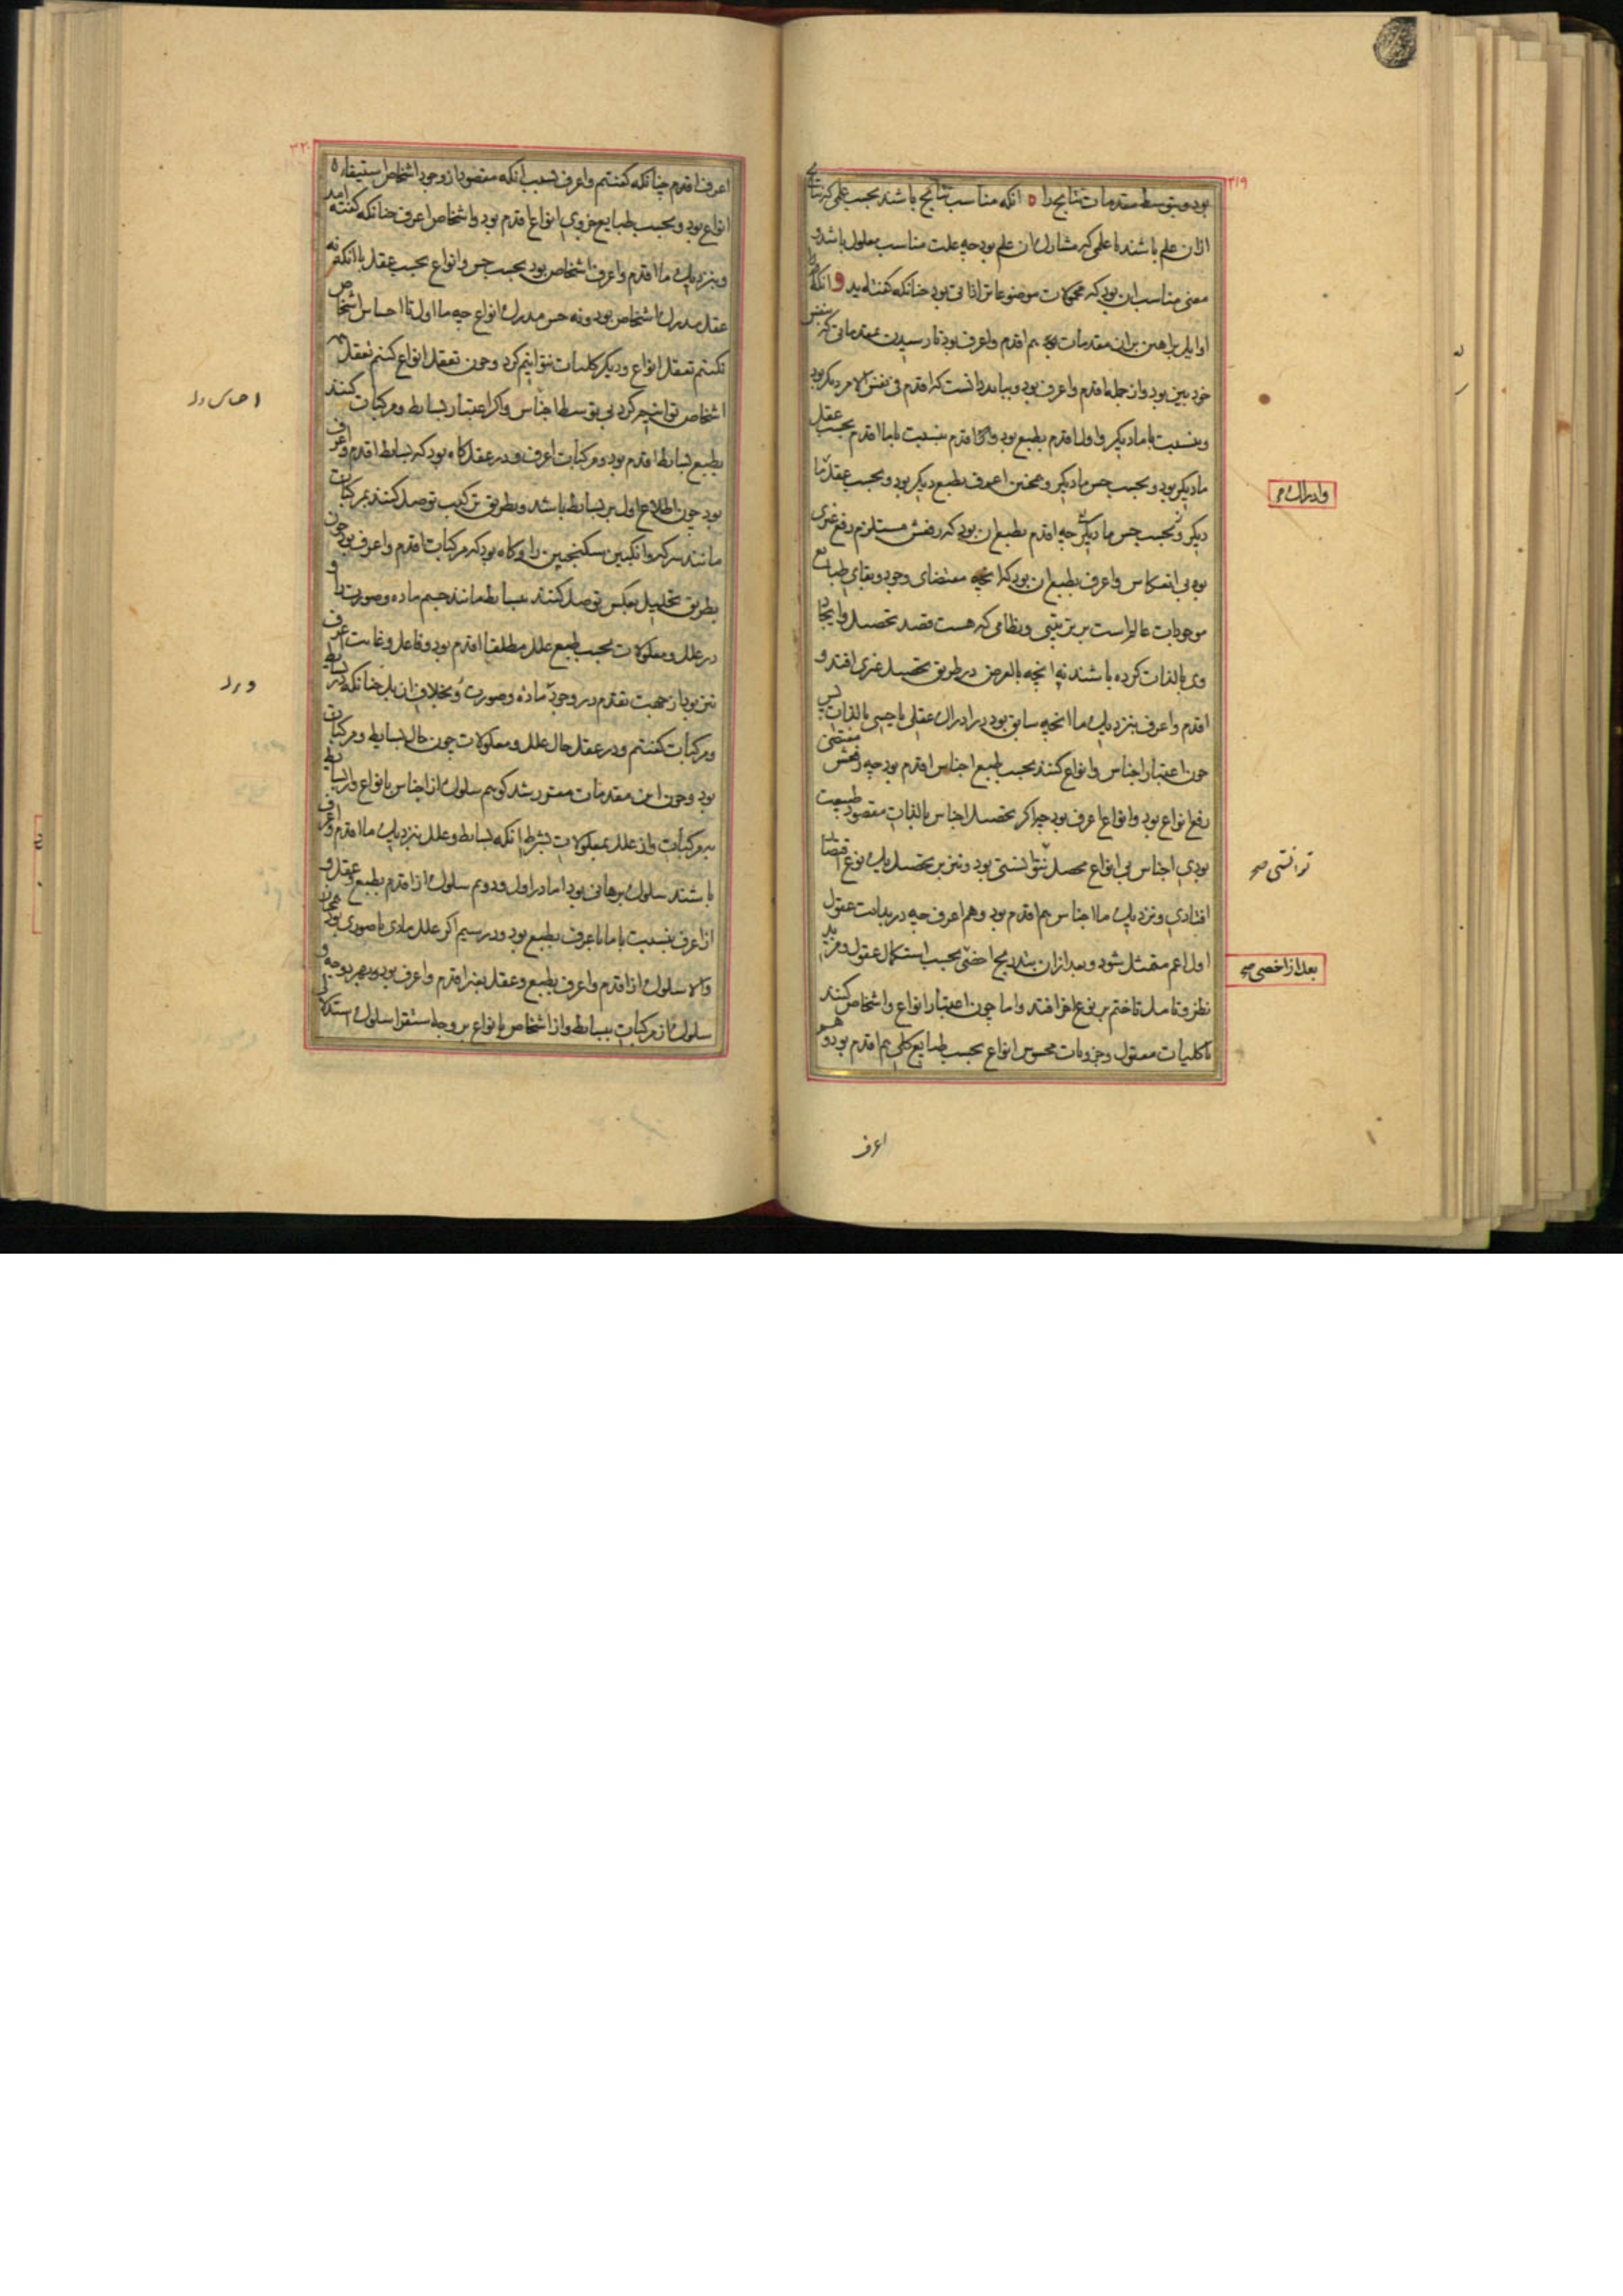 ۳۱۹
بود و بتوسط مقدمات نتایج را ه انکه مناسب نتایج باشند بحسب علمی که نتایج
ازان علم باشند یا علمی که مشارک ان علم بود چه علت مناسب معلول باشد و
معنی مناسب ان بود که محمولات موضوعاتش را ذاتی بود چنانکه کفته اید و انکه
اوایل براهین بران مقدمات بود هم اقدم و اعرف بود تا رسیدن بمقدماتی که بنفس
خود بین بود و از جمله اقدم و اعرف بود و بباید دانست که اقدم فی نفس الامر دیکر بود
و بنسبت با ما دیکر و اول اقدم بطبع بود و اقدم بنسبت با ما اقدم بحسب عقل
ما دیکر بود و بحسب حس ما دیکر و همچنین اعرف بطبع دیکر بود و بحسب عقل ما
دیکر و بحسب حس ما دیکر چه اقدم بطبع ان بود که رفعش مستلزم رفع غیری
بود بی انعکاس و اعرف بطبع ان بود که انچه مقتضای وجود و بقای طبایع
موجودات عالم است بر ترتیبی و نظامی که هست قصد تحصیل و ایجاد
وی بالذات کرده باشند نه انچه بالعرض در طریق تحصیل غیری افتد و
اقدم و اعرف بنزدیک ما انچه سابق بود در ادراک عقلی یا حسی بالذات پس
چون اعتبار اجناس و انواع کنند بحسب طبع اجناس اقدم بود چه رفعش مقتضی
رفع انواع بود و انواع اعرف بود چه اکر تحصیل اجناس بالذات مقصود طبیعت
بودی اجناس بی انواع محصل نتوانستی بود و نیز بر تحصیل یک نوع اقتصار
افتادی و نزدیک ما اجناس هم اقدم بود و هم اعرف چه در بدایت عقول
اول اعم متمثل شود و بعد ازان بتدریج اخص بحسب استکمال عقول و مزید
نظر و تامل تا ختم بر نوع اخر افتد و اما چون اعتبار انواع و اشخاص کنند
یا کلیات معقول و جزویات محسوس انواع بحسب طبایع کلی هم اقدم بود و هم
وادراک
توانستی صح
بعد از اخصی صح
اعرف
۳۲۰
اعرف اقدم چنانکه کفتیم و اعرف بسبب انکه مقصود از وجود اشخاص استیفاء
انواع بود و بحسب طبایع جزوی انواع اقدم بود و اشخاص اعرف چنانکه کفته امد
و بنزدیک ما اقدم و اعرف اشخاص بود بحسب حس و انواع بحسب عقل با انکه نه
عقل مدرک اشخاص بود و نه حس مدرک انواع چه ما اول تا احساس اشخاص
نکنیم تعقل انواع و دیکر کلیات نتوانیم کرد و چون تعقل انواع کنیم تعقل
اشخاص توانیم کرد بی توسط اجناس و اکر اعتبار بسایط و مرکبات کنند
بطبع بسایط اقدم بود و مرکبات اعرف و در عقل کاه بود که بسایط اقدم و اعرف
بود چون اطلاع اول بر بسایط باشد و بطریق ترکیب توصل کنند بمرکبات
مانند سرکه و انکبین سکنجبین را و کاه بود که مرکبات اقدم و اعرف بود چون
بطریق تحلیل بعکس توصل کنند ببسایط مانند جسم ماده و صورت را و
در علل و معلولات بحسب طبع علل مطلقا اقدم بود و فاعل و غایت اعرف
نیز بود از جهت تقدم در وجود ماده و صورت و بخلاف ان بل چنانکه در بسایط
و مرکبات کفتیم و در عقل حال علل و معلولات چون حال بسایط و مرکبات
بود و چون این مقدمات مقرر شد کوییم سلوک از اجناس بانواع و از بسایط
بمرکبات و از علل بمعلولات بشرط انکه بسایط و علل بنزدیک ما اقدم و اعرف
باشند سلوک برهانی بود اما در اول و دوم سلوک از اقدم بطبع و عقل و
از اعرف بنسبت با ما باعرف بطبع بود و در سیم اکر علل مادی یا صوری بود همچنان
والا سلوک از اقدم و اعرف بطبع و عقل بغیر اقدم و اعرف بود بهر دو وجه و
سلوک از مرکبات ببسایط و از اشخاص بانواع بر وجه استقرا سلوک استدلالی
احساس